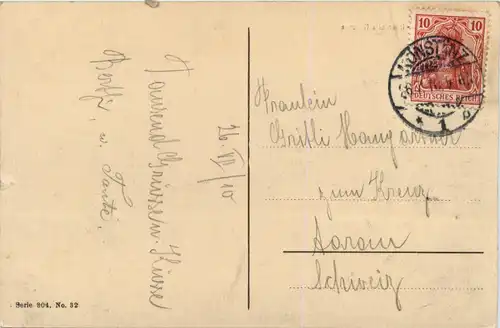 26. VII/10
Tausend Grüsse u. Küsse
u. Tante.
10 10
DEUTSCHES REICH
KONSTANZ
* 1
Fräulein
Gritli
zum Kreuz
Aarau
Schweiz
Serie 804. No. 32